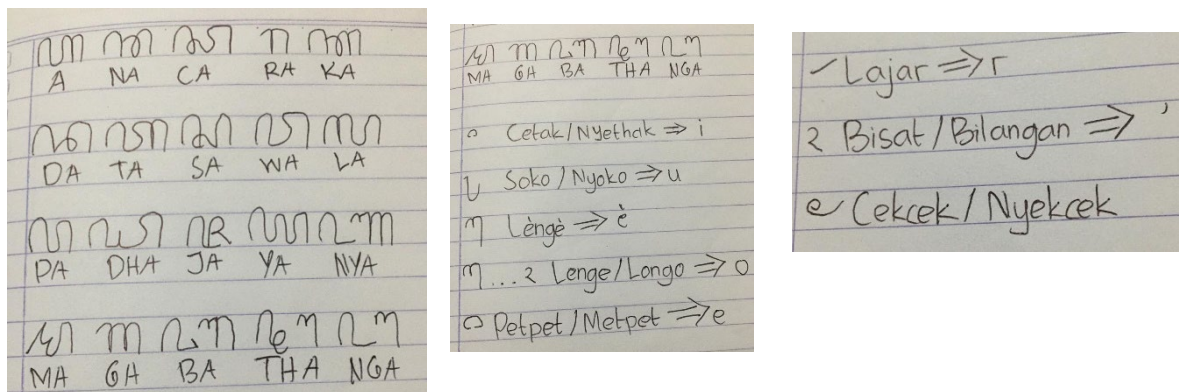 ꦲ ꦤ ꦕ ꦫ ꦏ
A NA CA RA KA
ꦢ ꦠ ꦱ ꦮ ꦭ
DA TA SA WA LA
ꦥ ꦝ ꦗ ꦪ ꦚ
PA DHA JA YA NYA
ꦩ ꦒ ꦧ ꦛ ꦔ
MA GA BA THA NGA
ꦩ ꦒ ꦧ ꦛ ꦔ
MA GA BA THA NGA
ꦶ Cetak/Nyethak ⇒ i
ꦸ Soko/Nyoko ⇒ u
ꦺ Lèngè ⇒ è
ꦺ...ꦴ Lenge/Longo ⇒ o
ꦼ Petpet/Metpet ⇒ e
ꦂ Lajar ⇒ r
ꦃ Bisat/Bilangan ⇒ '
ꦀ Cekcek/Nyekcek